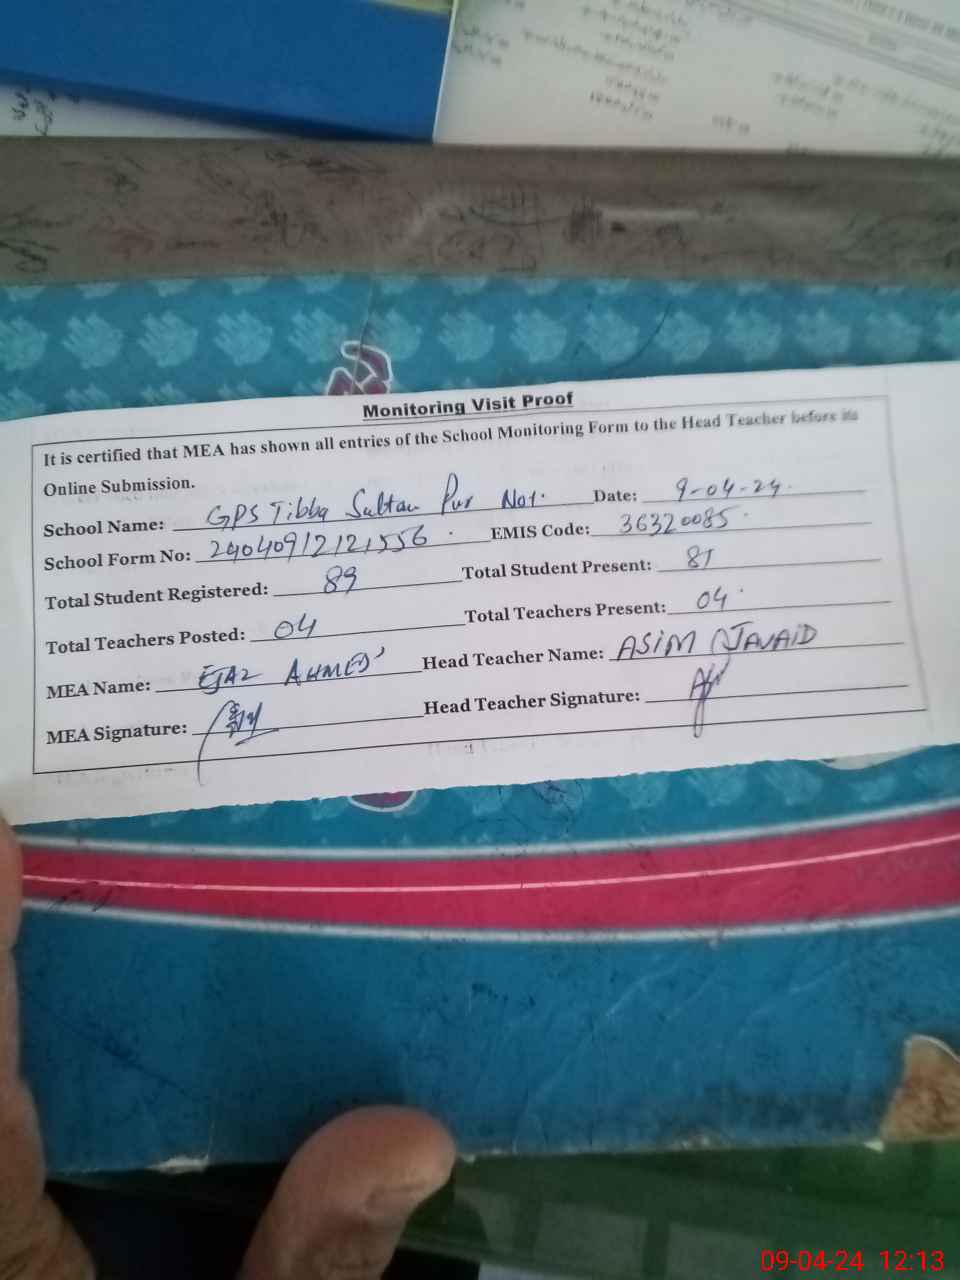 Monitoring Visit Proof
It is certified that MEA has shown all entries of the School Monitoring Form to the Head Teacher before its
Online Submission.
School Name: GPS Tibba Sultan Pur No1. Date: 9-04-24.
School Form No: 24040912121556 . EMIS Code: 36320085.
Total Student Registered: 89 Total Student Present: 81
Total Teachers Posted: 04 Total Teachers Present: 04.
MEA Name: EJAZ AHMED Head Teacher Name: ASIM JAVAID
MEA Signature: Head Teacher Signature:
09-04-24 12:13